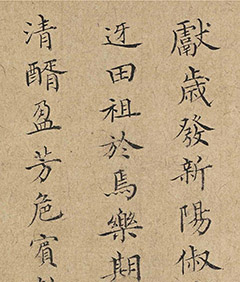 獻歲發新陽俶
迓田祖於焉樂期
清醑盈芳卮賓